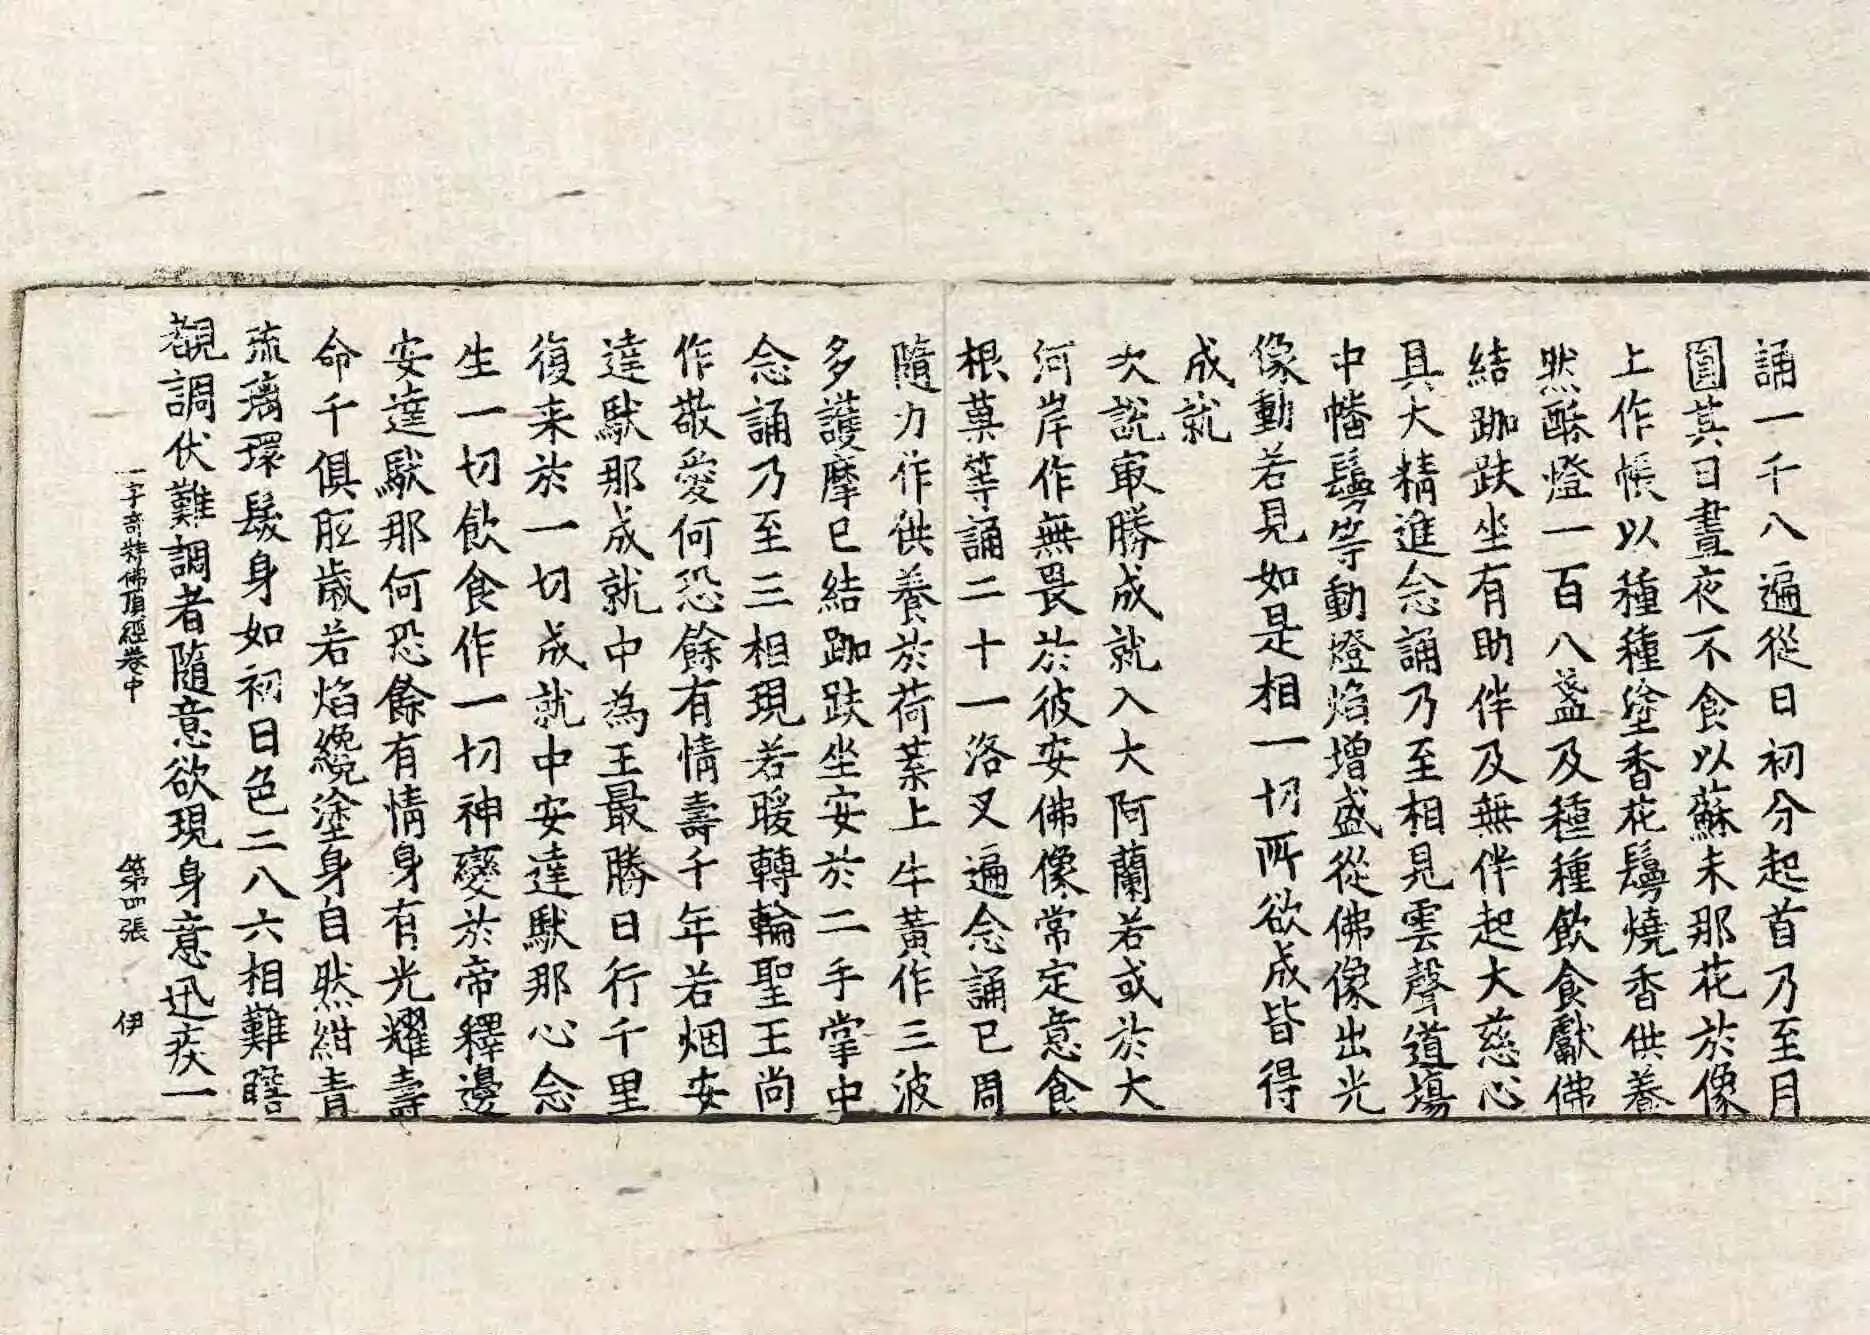 誦一千八遍從日初分起首乃至月
圓其日晝夜不食以蘇末那花於像
上作帳以種種塗香花鬘燒香供養
然酥燈一百八盞及種種飲食獻佛
結跏趺坐有助伴及無伴起大慈心
具大精進念誦乃至相見雲聲道場
中幡鬘等動燈焰增盛從佛像出光
像動若見如是相一切所欲成皆得
成就
次說㝡勝成就入大阿蘭若或於大
河岸作無畏於彼安佛像常定意食
根菓等誦二十一洛叉遍念誦已周
隨力作供養於荷葉上牛黃作三波
多護摩已結跏趺坐安於二手掌中
念誦乃至三相現若暖轉輪聖王尚
作敬愛何恐餘有情壽千年若烟安
達馱那成就中為王最勝日行千里
復来於一切成就中安達馱那心念
生一切飲食作一切神變於帝釋邊
安達馱那何恐餘有情身有光耀壽
命千俱胝歲若焰纔塗身自然紺青
琉璃環髮身如初日色二八六相難瞻
覩調伏難調者隨意欲現身意迅疾一
一字奇特佛頂經卷中 第四張 伊